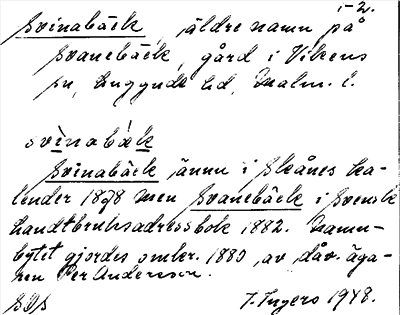 1-2.
Svinabäck, äldre namn på
Svanebäck, gård i Vikens
sn, Luggude hd, Malm. l.
svinabäk
Svinabäck ännu i Skånes ka-
lender 1878 men Svanebäck i Svensk
handtbruksadressbok 1882. Namn-
bytet gjordes omkr. 1880, av dåv. äga-
ren Per Andersson.
SDS
T. Ingers 1948.